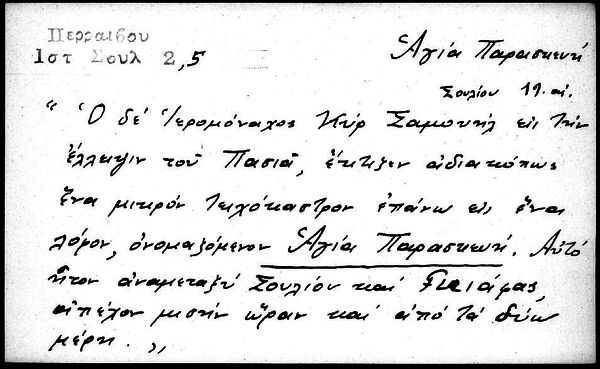 Περραιβου
Ιστ Σουλ 2,5
Ἁγία Παρασκευή
Σουλίου 19. αἰ.
“ Ὁ δέ Ἱερομόναχος Κύρ Σαμουήλ εἰς τήν
ἔλλειψιν τοῦ Πασιᾶ, ἔκτιζεν ἀδιακόπως
ἕνα μικρόν τειχόκαστρον ἐπάνω εἰς ἕνα
λόφον, ὀνομαζόμενον Ἁγία Παρασκευή. Αὐτό
ἦτον ἀναμεταξύ Σουλίου καί Κιάφας,
ἀπέχον μισήν ὥραν καί ἀπό τά δύω
μέρη. „